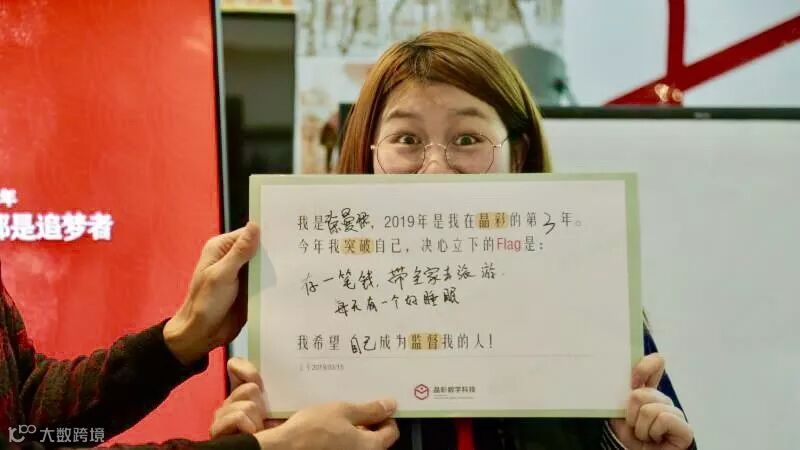 年
都是追梦者
我是徐曼，2019年是我在晶彩的第3年。
今年我突破自己，决心立下的Flag是：
存一笔钱，带全家去旅游.
每天有一个好睡眠
我希望 自己成为监督我的人！
2019/03/15
晶彩数字科技
大数跨境